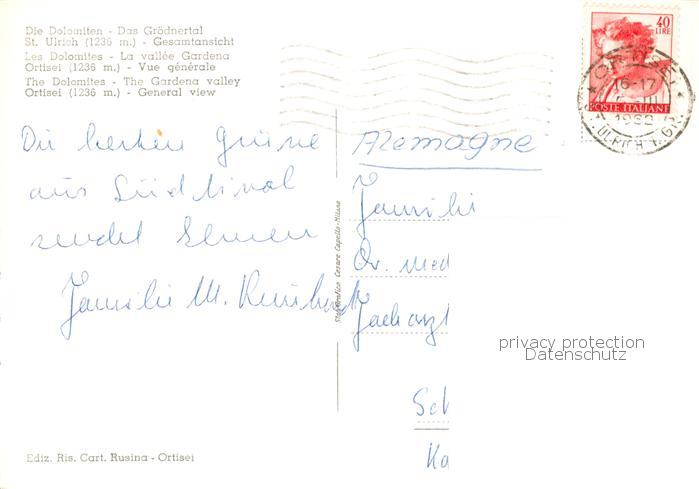 Die Dolomiten - Das Grödnertal
St. Ulrich (1236 m.) - Gesamtansicht
Les Dolomites - La vallée Gardena
Ortisei (1236 m.) - Vue générale
The Dolomites - The Gardena valley
Ortisei (1236 m.) - General view
40
LIRE
POSTE ITALIANE
ORTISEI
16-17
ULRICH
Die besten Grüsse
aus Südtirol
sendet Ihnen
Familie M.
Alemagne
Familie
Dr. med
Facharzt
Sch
Ka
Stabilimento Cesare Capello-Milano
privacy protection
Datenschutz
Ediz. Ris. Cart. Rusina - Ortisei